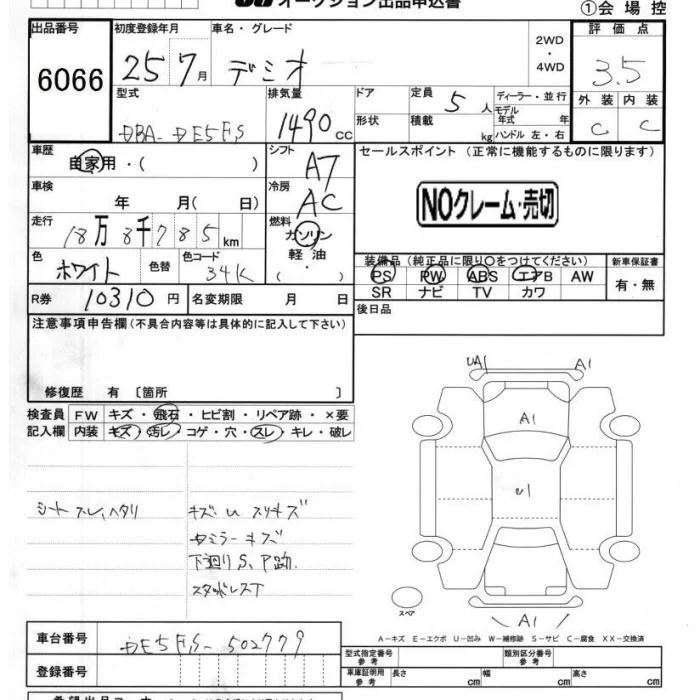 オークション出品申込書
①会場控
出品番号 初度登録年月 車名・グレード 2WD・4WD 評価点
6066 25 7月 デミオ 3.5
型式 排気量 ドア 定員 5人 ディーラー・並行 外装 内装
DBA-DE5FS 1490cc 形状 積載 kg モデル年式 年 ハンドル 左・右 C C
車歴 自家用・( ) シフト AT セールスポイント (正常に機能するものに限ります)
車検 年 月( 日) 冷房 AC NOクレーム・売切
走行 18万8千785km 燃料 ガソリン 軽油 ( )
色 ホワイト 色替 色コード 34K
装備品 (純正品に限り○をつけてください) 新車保証書
PS PW ABS エアB AW 有・無
SR ナビ TV カワ
R券 10310円 名変期限 月 日 後日品
注意事項申告欄(不具合内容等は具体的に記入して下さい)
修復歴 有 〔箇所 〕
検査員記入欄 FW キズ・飛石・ヒビ割・リペア跡・×要
内装 キズ・汚レ・コゲ・穴・スレ・キレ・破レ
シート スレ、ヘタリ
キズ U スリキズ
ミラーキズ
下廻りS、P跡.
スタッドレスT
UA1 A1
A1
U1
スペア
A1
A-キズ E-エクボ U-凹み W-補修跡 S-サビ C-腐食 XX-交換済
車台番号 DE5FS-502779
型式指定番号 参考 類別区分番号 参考
登録番号 車庫証明用 参考 長さ cm 幅 cm 高さ cm